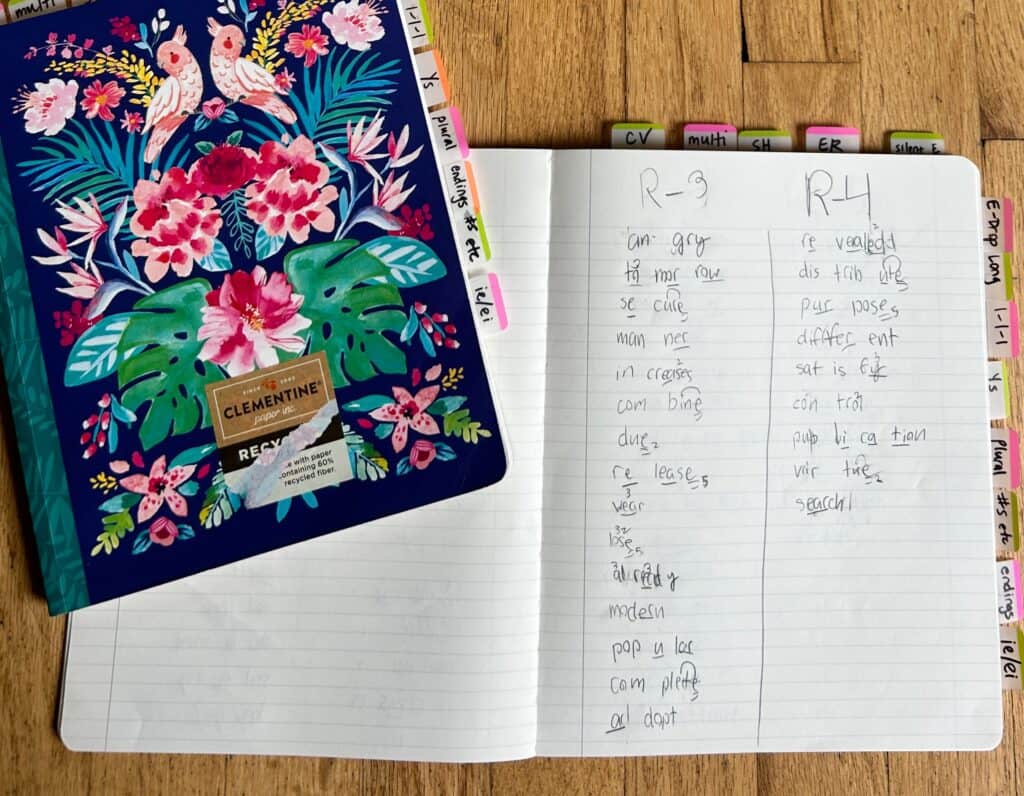 multi
1-1-1
Ys
plural
endings
#s etc
ie/ei
SINCE 2003
CLEMENTINE®
paper inc.
RECYC
e with paper
containing 60%
recycled fiber.
CV
multi
SH
ER
silent E
E-Drop Long
1-1-1
Ys
plural
#s etc
endings
ie/ei
R-3
an gry
to mor row
se cure
man ner
in creases
com bine
due 2
re lease 5
3
wear
32
lose 5
3 2
al ready
modern
pop u lar
com plete 3
ad dapt
R-4
2
re vealedd
dis trib ute 5
pur pose 5
differ ent
sat is
con trol
pub li ca tion
vir tue 2
search